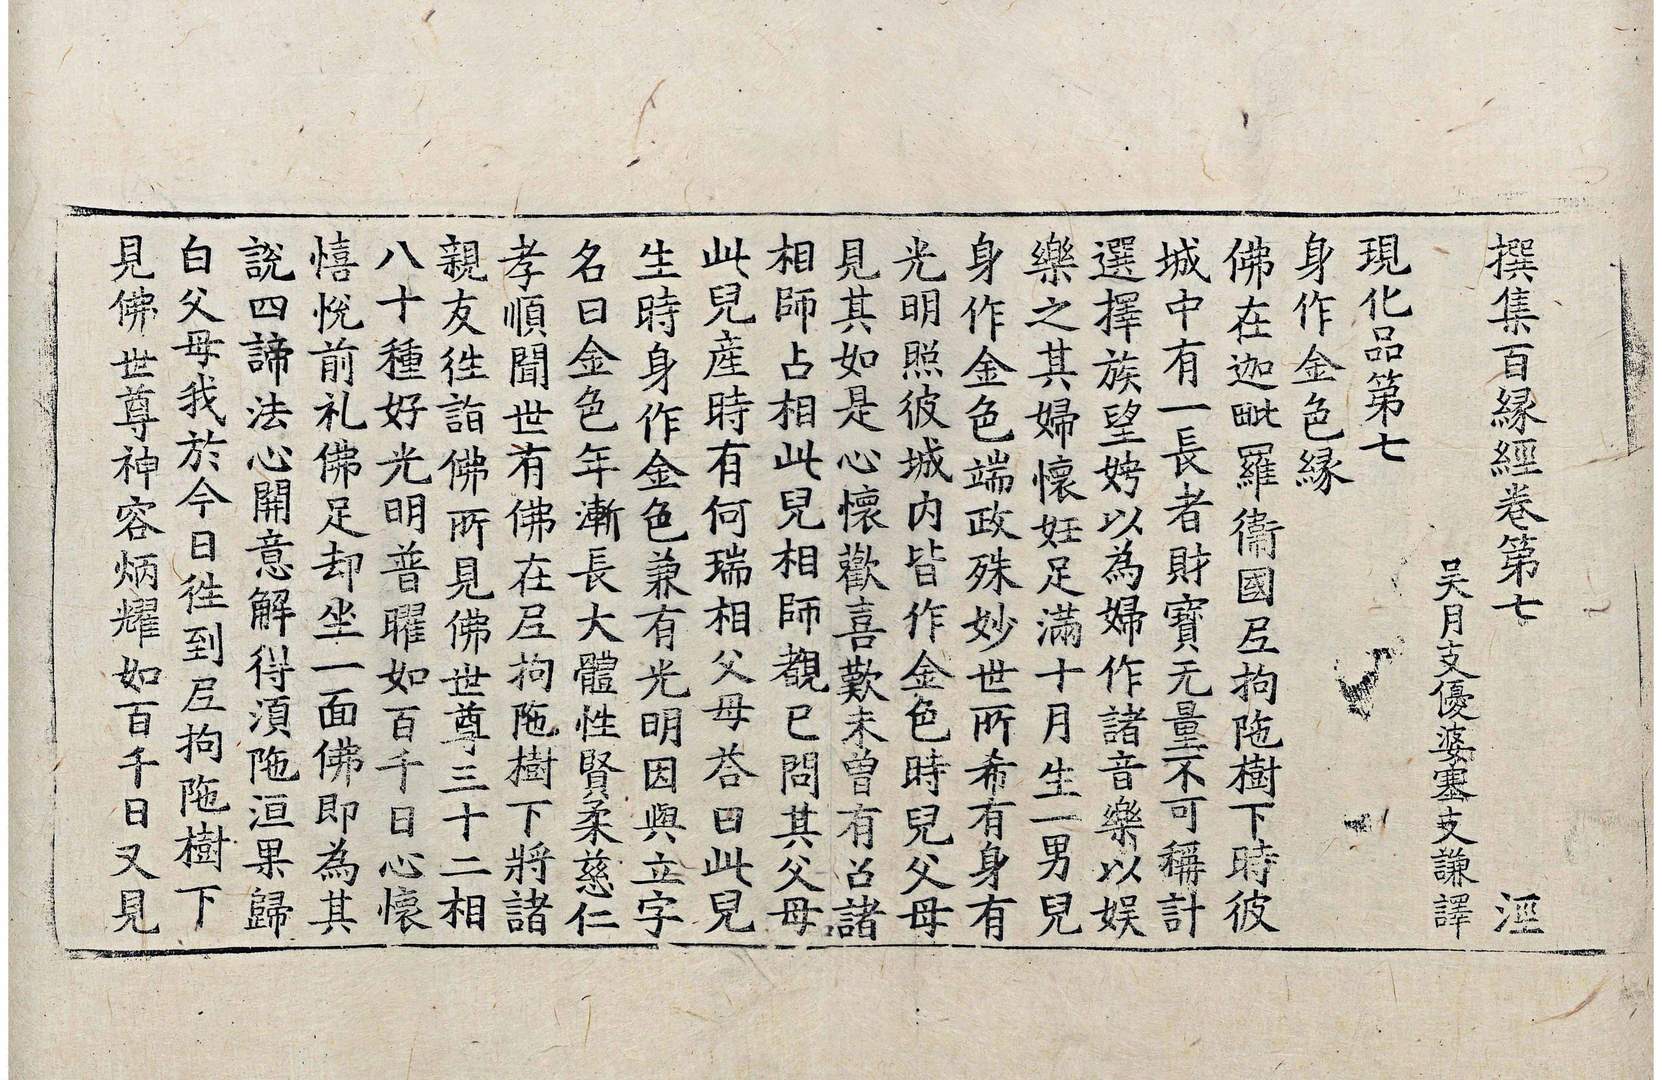 撰集百緣經卷第七 渥
吳月支優婆塞支謙譯
現化品第七
身作金色緣
佛在迦毗羅衞國尼拘陁樹下時彼
城中有一長者財寶无量不可稱計
選擇族望娉以為婦作諸音樂以娛
樂之其婦懷妊足滿十月生一男兒
身作金色端政殊妙世所希有身有
光明照彼城內皆作金色時兒父母
見其如是心懷歡喜歎未曾有召諸
相師占相此兒相師覩已問其父母
此兒產時有何瑞相父母荅曰此兒
生時身作金色兼有光明因與立字
名曰金色年漸長大體性賢柔慈仁
孝順聞世有佛在尼拘陁樹下將諸
親友往詣佛所見佛世尊三十二相
八十種好光明普曜如百千日心懷
憘悅前礼佛足却坐一面佛即為其
說四諦法心開意解得湏陁洹果歸
白父母我於今日往到尼拘陁樹下
見佛世尊神容炳耀如百千日又見